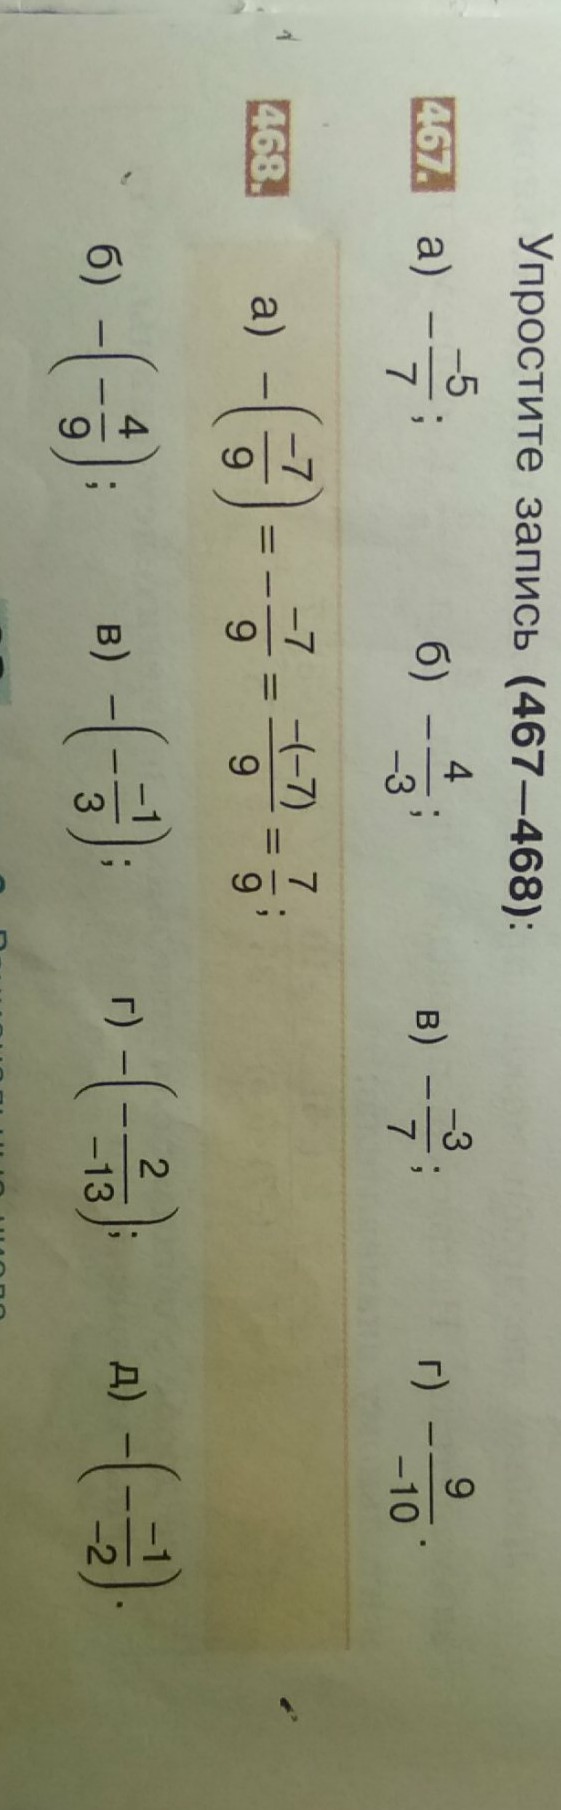 Упростите запись (467—468):
467. а) −\frac{−5}{7}; б) −\frac{4}{−3}; в) −\frac{−3}{7}; г) −\frac{9}{−10}.
468. а) −(\frac{−7}{9}) = −\frac{−7}{9} = \frac{−(−7)}{9} = \frac{7}{9};
б) −(−\frac{4}{9}); в) −(−\frac{−1}{3}); г) −(−\frac{2}{−13}); д) −(−\frac{−1}{−2}).